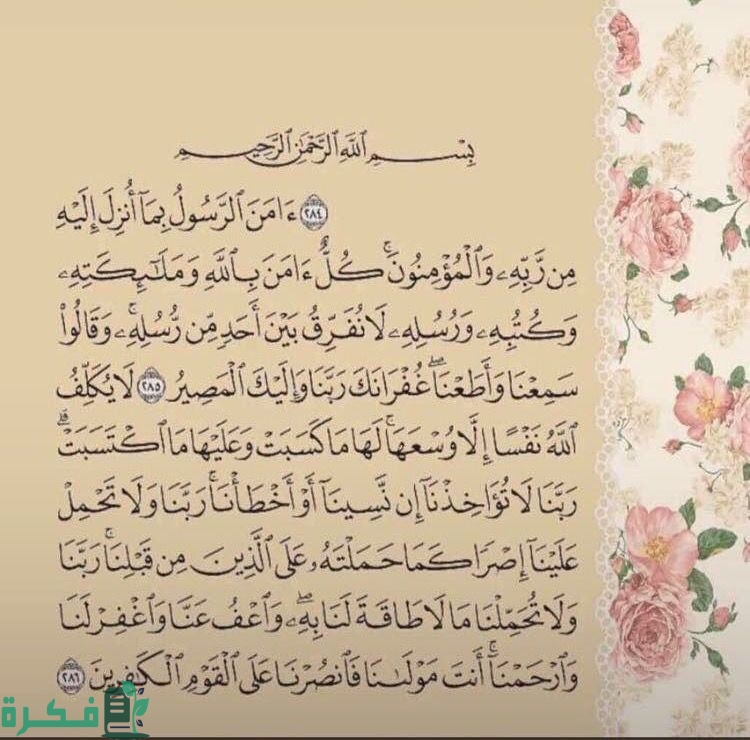 بِسْمِ ٱللَّهِ ٱلرَّحْمَٰنِ ٱلرَّحِيمِ
۝٢٨٤ ءَامَنَ ٱلرَّسُولُ بِمَآ أُنزِلَ إِلَيْهِ
مِن رَّبِّهِۦ وَٱلْمُؤْمِنُونَ ۚ كُلٌّ ءَامَنَ بِٱللَّهِ وَمَلَٰٓئِكَتِهِۦ
وَكُتُبِهِۦ وَرُسُلِهِۦ لَا نُفَرِّقُ بَيْنَ أَحَدٍ مِّن رُّسُلِهِۦ ۚ وَقَالُوا۟
سَمِعْنَا وَأَطَعْنَا ۖ غُفْرَانَكَ رَبَّنَا وَإِلَيْكَ ٱلْمَصِيرُ ۝٢٨٥ لَا يُكَلِّفُ
ٱللَّهُ نَفْسًا إِلَّا وُسْعَهَا ۚ لَهَا مَا كَسَبَتْ وَعَلَيْهَا مَا ٱكْتَسَبَتْ ۗ
رَبَّنَا لَا تُؤَاخِذْنَآ إِن نَّسِينَآ أَوْ أَخْطَأْنَا ۚ رَبَّنَا وَلَا تَحْمِلْ
عَلَيْنَآ إِصْرًا كَمَا حَمَلْتَهُۥ عَلَى ٱلَّذِينَ مِن قَبْلِنَا ۚ رَبَّنَا
وَلَا تُحَمِّلْنَا مَا لَا طَاقَةَ لَنَا بِهِۦ ۖ وَٱعْفُ عَنَّا وَٱغْفِرْ لَنَا
وَٱرْحَمْنَآ ۚ أَنتَ مَوْلَىٰنَا فَٱنصُرْنَا عَلَى ٱلْقَوْمِ ٱلْكَٰفِرِينَ ۝٢٨٦
فكرة